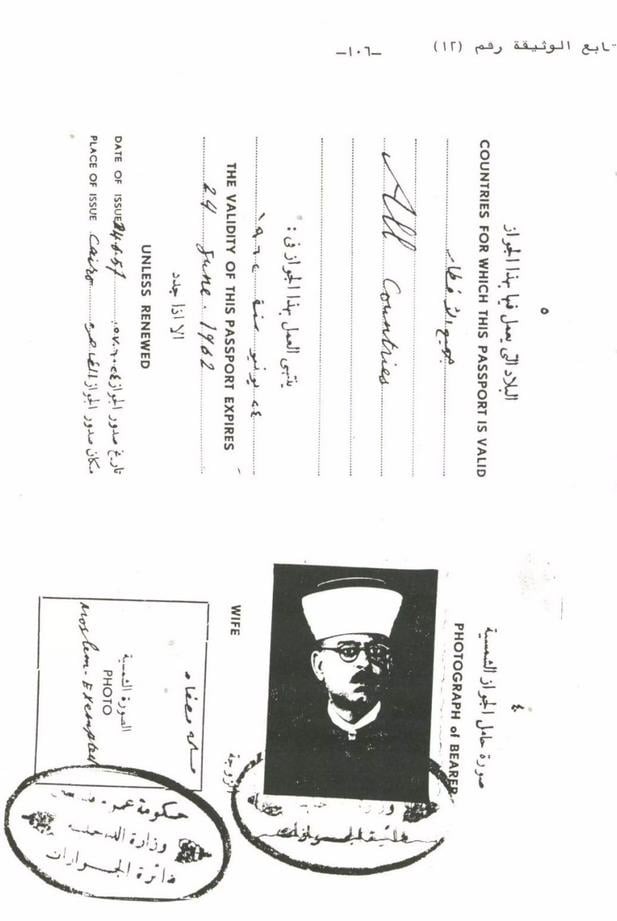 تابع الوثيقة رقم (١٢)
–١٠٦–
٥
البلاد التي يعمل فيها بهذا الجواز
COUNTRIES FOR WHICH THIS PASSPORT IS VALID
جميع الاقطار
All Countries
ينتهي العمل بهذا الجواز في :
٢٤ يونيو سنة ١٩٦٢
THE VALIDITY OF THIS PASSPORT EXPIRES
24 June. 1962
الا اذا جدد
UNLESS RENEWED
DATE OF ISSUE 24.6.57 تاريخ صدور الجواز ٢٤.٦.٥٧
PLACE OF ISSUE Cairo مكان صدور الجواز القاهرة
٤
صورة حامل الجواز الشمسية
PHOTOGRAPH of BEARER
WIFE الزوجة
مسلمه معفاه
الصورة الشمسية
PHOTO
Moslem - Exempted
حكومة عموم فلسطين
وزارة الداخلية
دائرة الجوازات